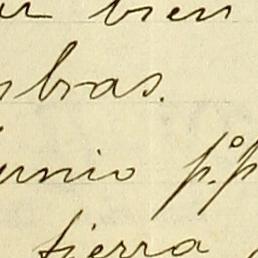 bien
bras.
unio p.º p
tierra